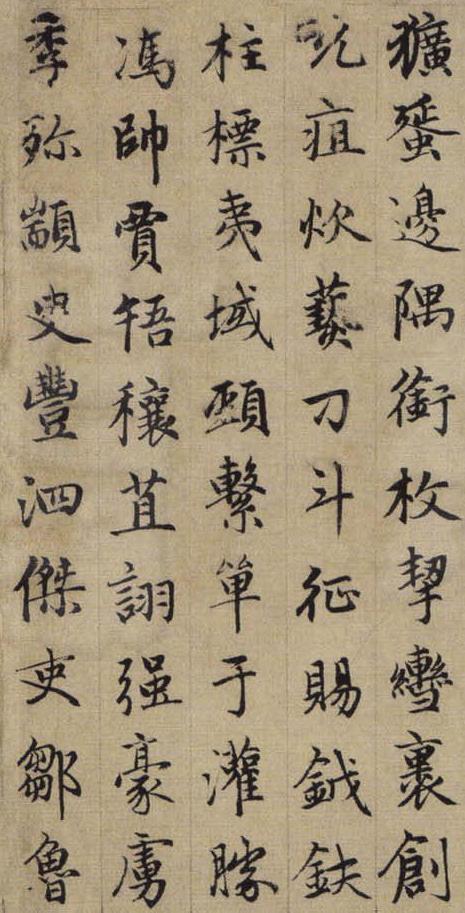 獷蜑邊隅銜枚挈裹創
吮疽炊爇刀斗征賜鉞鈇
柱標夷域頸繫單于灌滕
馮帥賈啎穰苴詡强豪虜
季殄顓臾豐泗傑吏鄒魯